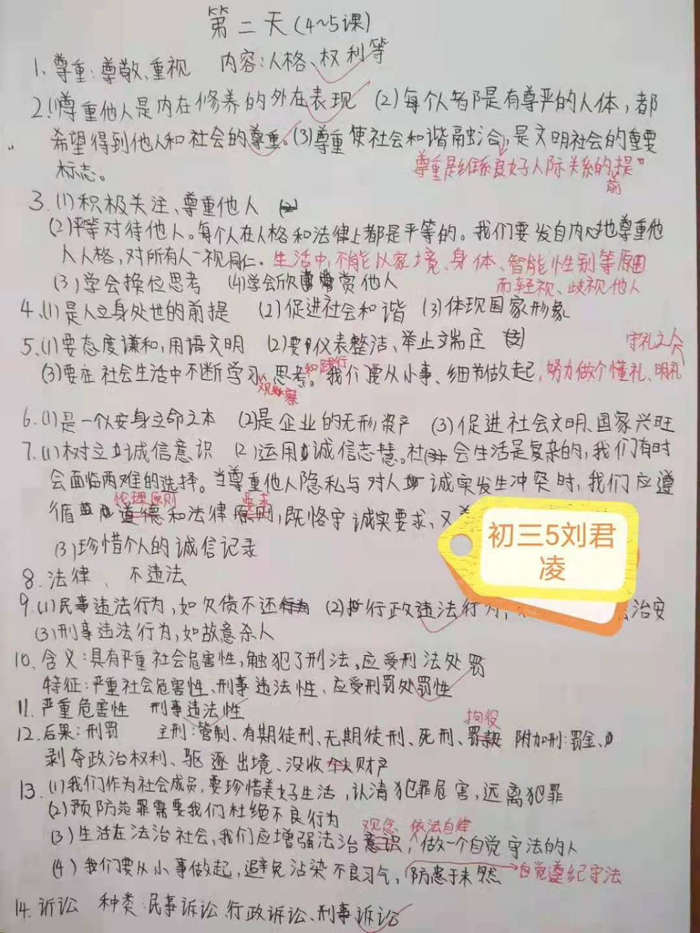 第二天(4~5课)
1.尊重:尊敬、重视 内容:人格、权利等
2.(1)尊重他人是内在修养的外在表现 (2)每个人都是有尊严的人体,都
希望得到他人和社会的尊重。(3)尊重使社会和谐融洽,是文明社会的重要
标志。
尊重是维系良好人际关系的前提
3.(1)积极关注、尊重他人
(2)平等对待他人。每个人在人格和法律上都是平等的。我们要发自内心地尊重他
人人格,对所有人一视同仁。生活中,不能以家境、身体、智能性别等原因
而轻视、歧视他人
(3)学会换位思考 (4)学会欣赏他人
4.(1)是人立身处世的前提 (2)促进社会和谐 (3)体现国家形象
5.(1)要态度谦和,用语文明 (2)要仪表整洁、举止端庄
(3)要在社会生活中不断学习、观察、思考和践行。我们要从小事、细节做起,努力做个懂礼、明礼、守礼之人
6.(1)是一个人安身立命之本 (2)是企业的无形资产 (3)促进社会文明、国家兴旺
7.(1)树立诚信意识 (2)运用诚信志慧。社会生活是复杂的,我们有时
会面临两难的选择。当尊重他人隐私与对人诚实发生冲突时,我们应遵
循伦理原则和法律要求,既恪守诚实要求,又
(3)珍惜个人的诚信记录
初三5刘君
凌
8.法律、不违法
9.(1)民事违法行为,如欠债不还 (2)行政违法行为, 治安
(3)刑事违法行为,如故意杀人
10.含义:具有严重社会危害性,触犯了刑法,应受刑法处罚
特征:严重社会危害性、刑事违法性、应受刑罚处罚性
11.严重危害性 刑事违法性
12.后果:刑罚 主刑:管制、有期徒刑、无期徒刑、死刑、拘役 附加刑:罚金、
剥夺政治权利、驱逐出境、没收财产
13.(1)我们作为社会成员,要珍惜美好生活,认清犯罪危害,远离犯罪
(2)预防范罪需要我们杜绝不良行为
(3)生活在法治社会,我们应增强法治观念、依法自律,做一个自觉守法的人
(4)我们要从小事做起,避免沾染不良习气,自觉遵纪守法防患于未然
14.诉讼 种类:民事诉讼、行政诉讼、刑事诉讼